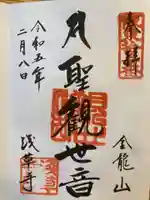 奉拝
金龍山
聖觀世音
令和五年
二月八日
浅草寺